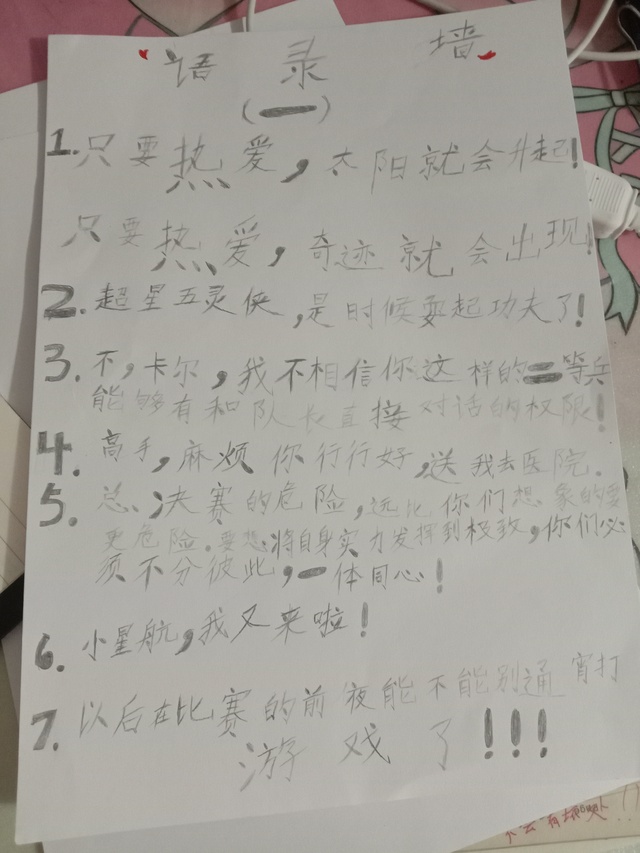 语录墙
(一)
1.只要热爱,太阳就会升起!
只要热爱,奇迹就会出现!
2.超星五灵侠,是时候耍起功夫了!
3.不,卡尔,我不相信你这样的二等兵
能够有和队长直接对话的权限!
4.高手,麻烦你行行好,送我去医院.
5.总决赛的危险,远比你们想象的要
更危险.要想将自身实力发挥到极致,你们必
须不分彼此,一体同心!
6.小星航,我又来啦!
7.以后在比赛的前夜能不能别通宵打
游戏了!!!